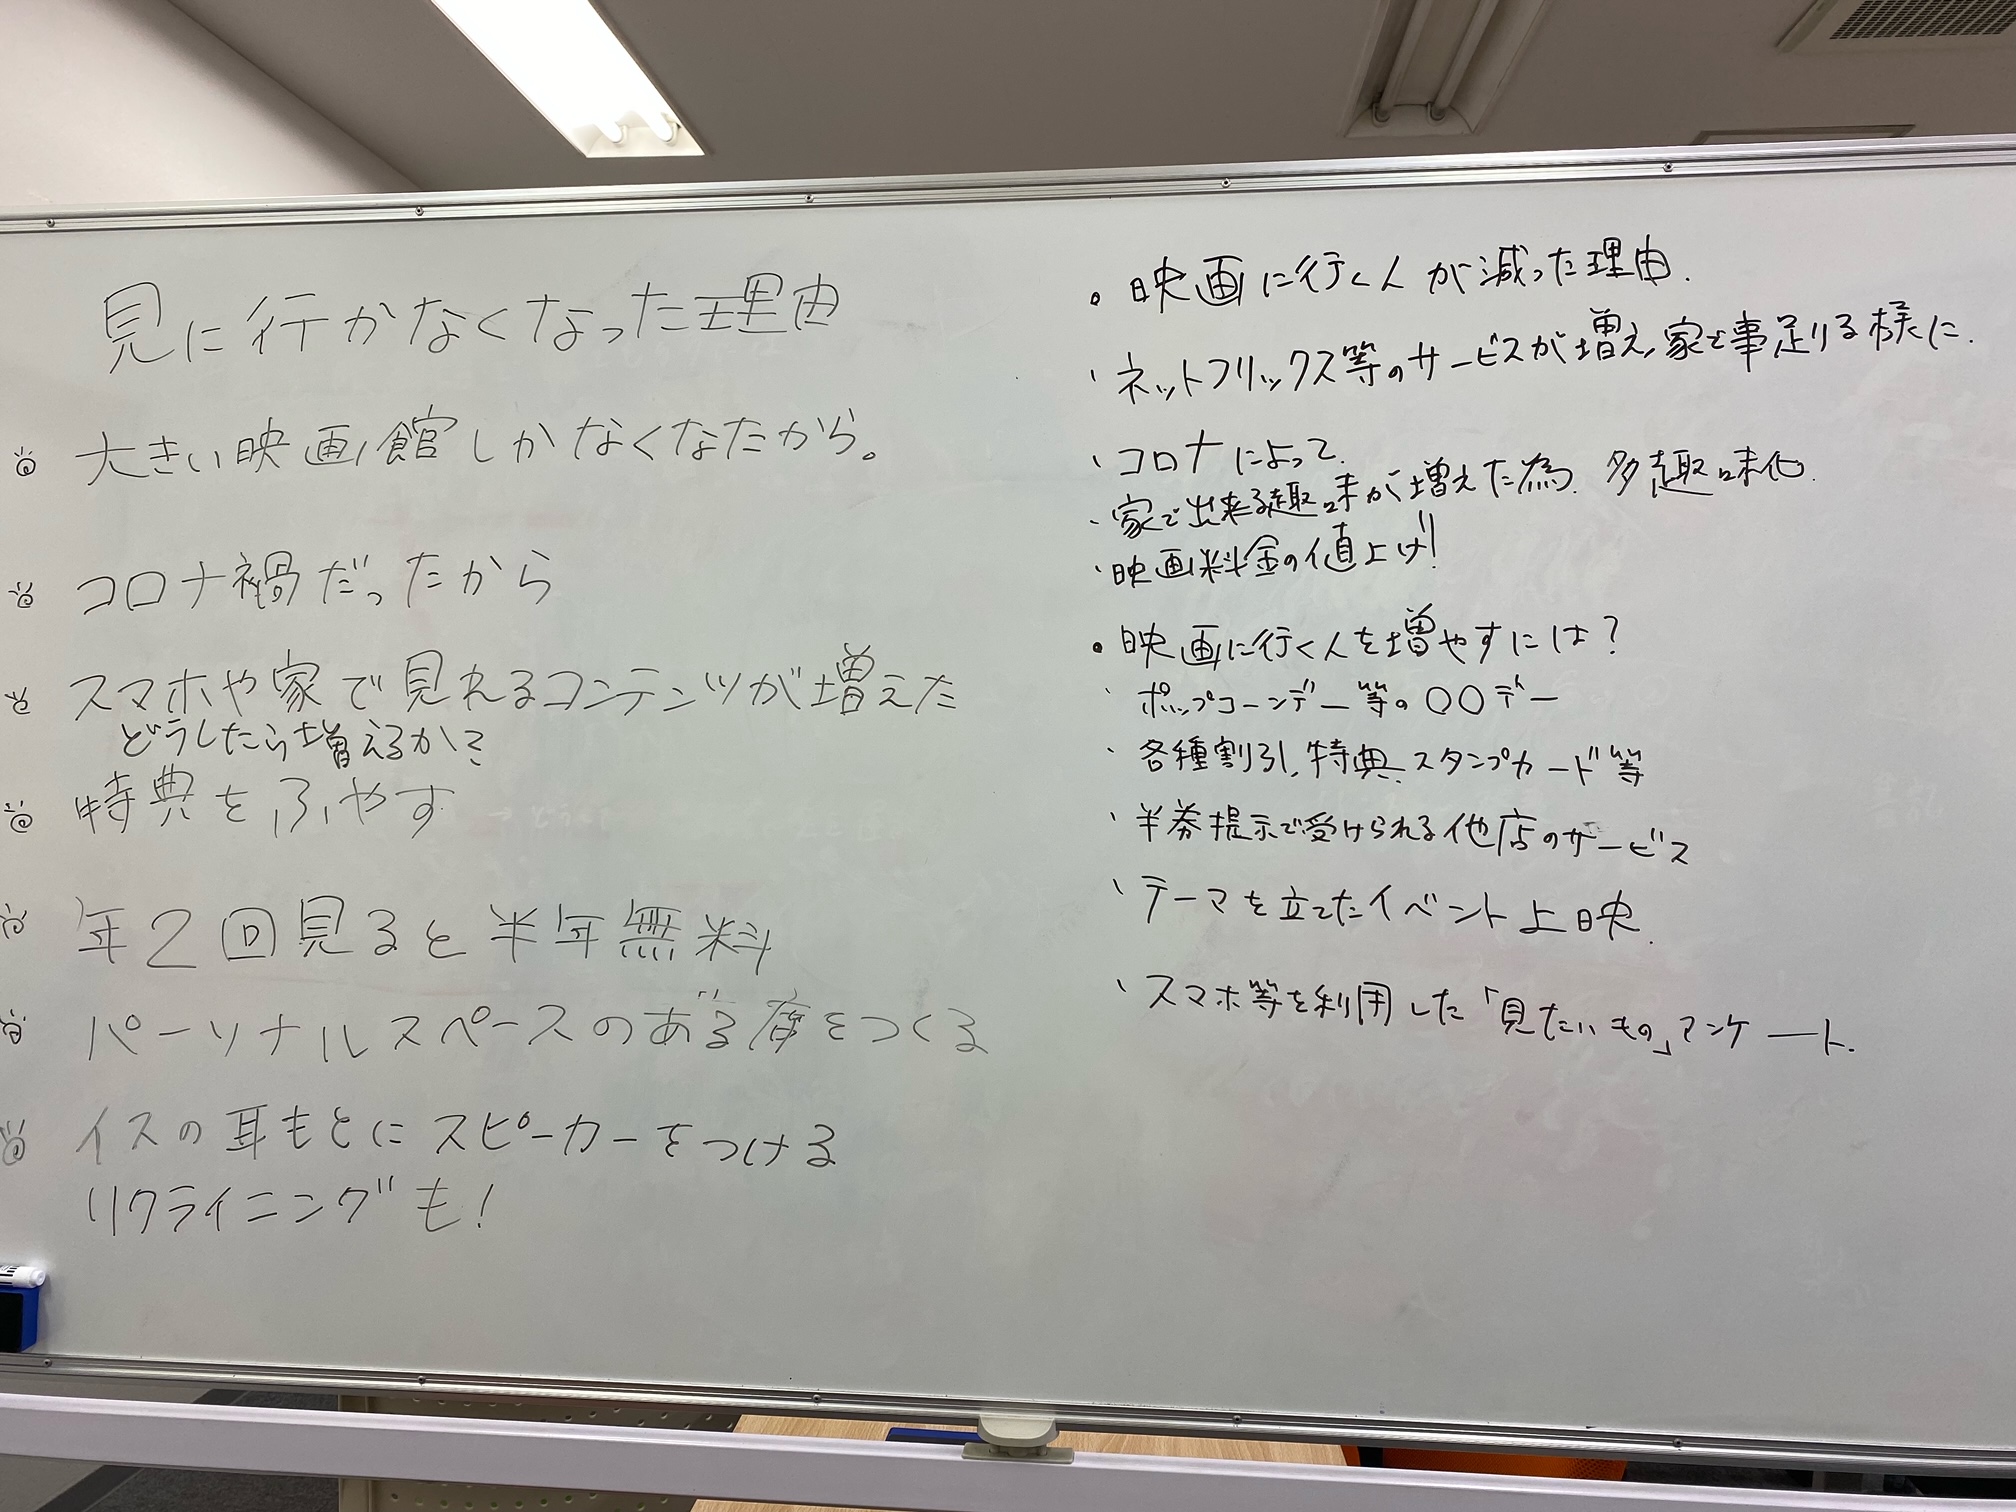 見に行かなくなった理由
大きい映画館しかなくなたから。
コロナ禍だったから
スマホや家で見れるコンテンツが増えた
どうしたら増えるか?
特典をふやす
年2回見ると半年無料
パーソナルスペースのある席をつくる
イスの耳もとにスピーカーをつける
リクライニングも!
・映画に行く人が減った理由.
・ネットフリックス等のサービスが増え、家で事足りる様に.
・コロナによって、
・家で出来る趣味が増えた為、多趣味化.
・映画料金の値上げ!
・映画に行く人を増やすには?
・ポップコーンデー等の〇〇デー
・各種割引、特典、スタンプカード等
・半券提示で受けられる他店のサービス
・テーマを立てたイベント上映.
・スマホ等を利用した「見たいもの」アンケート.